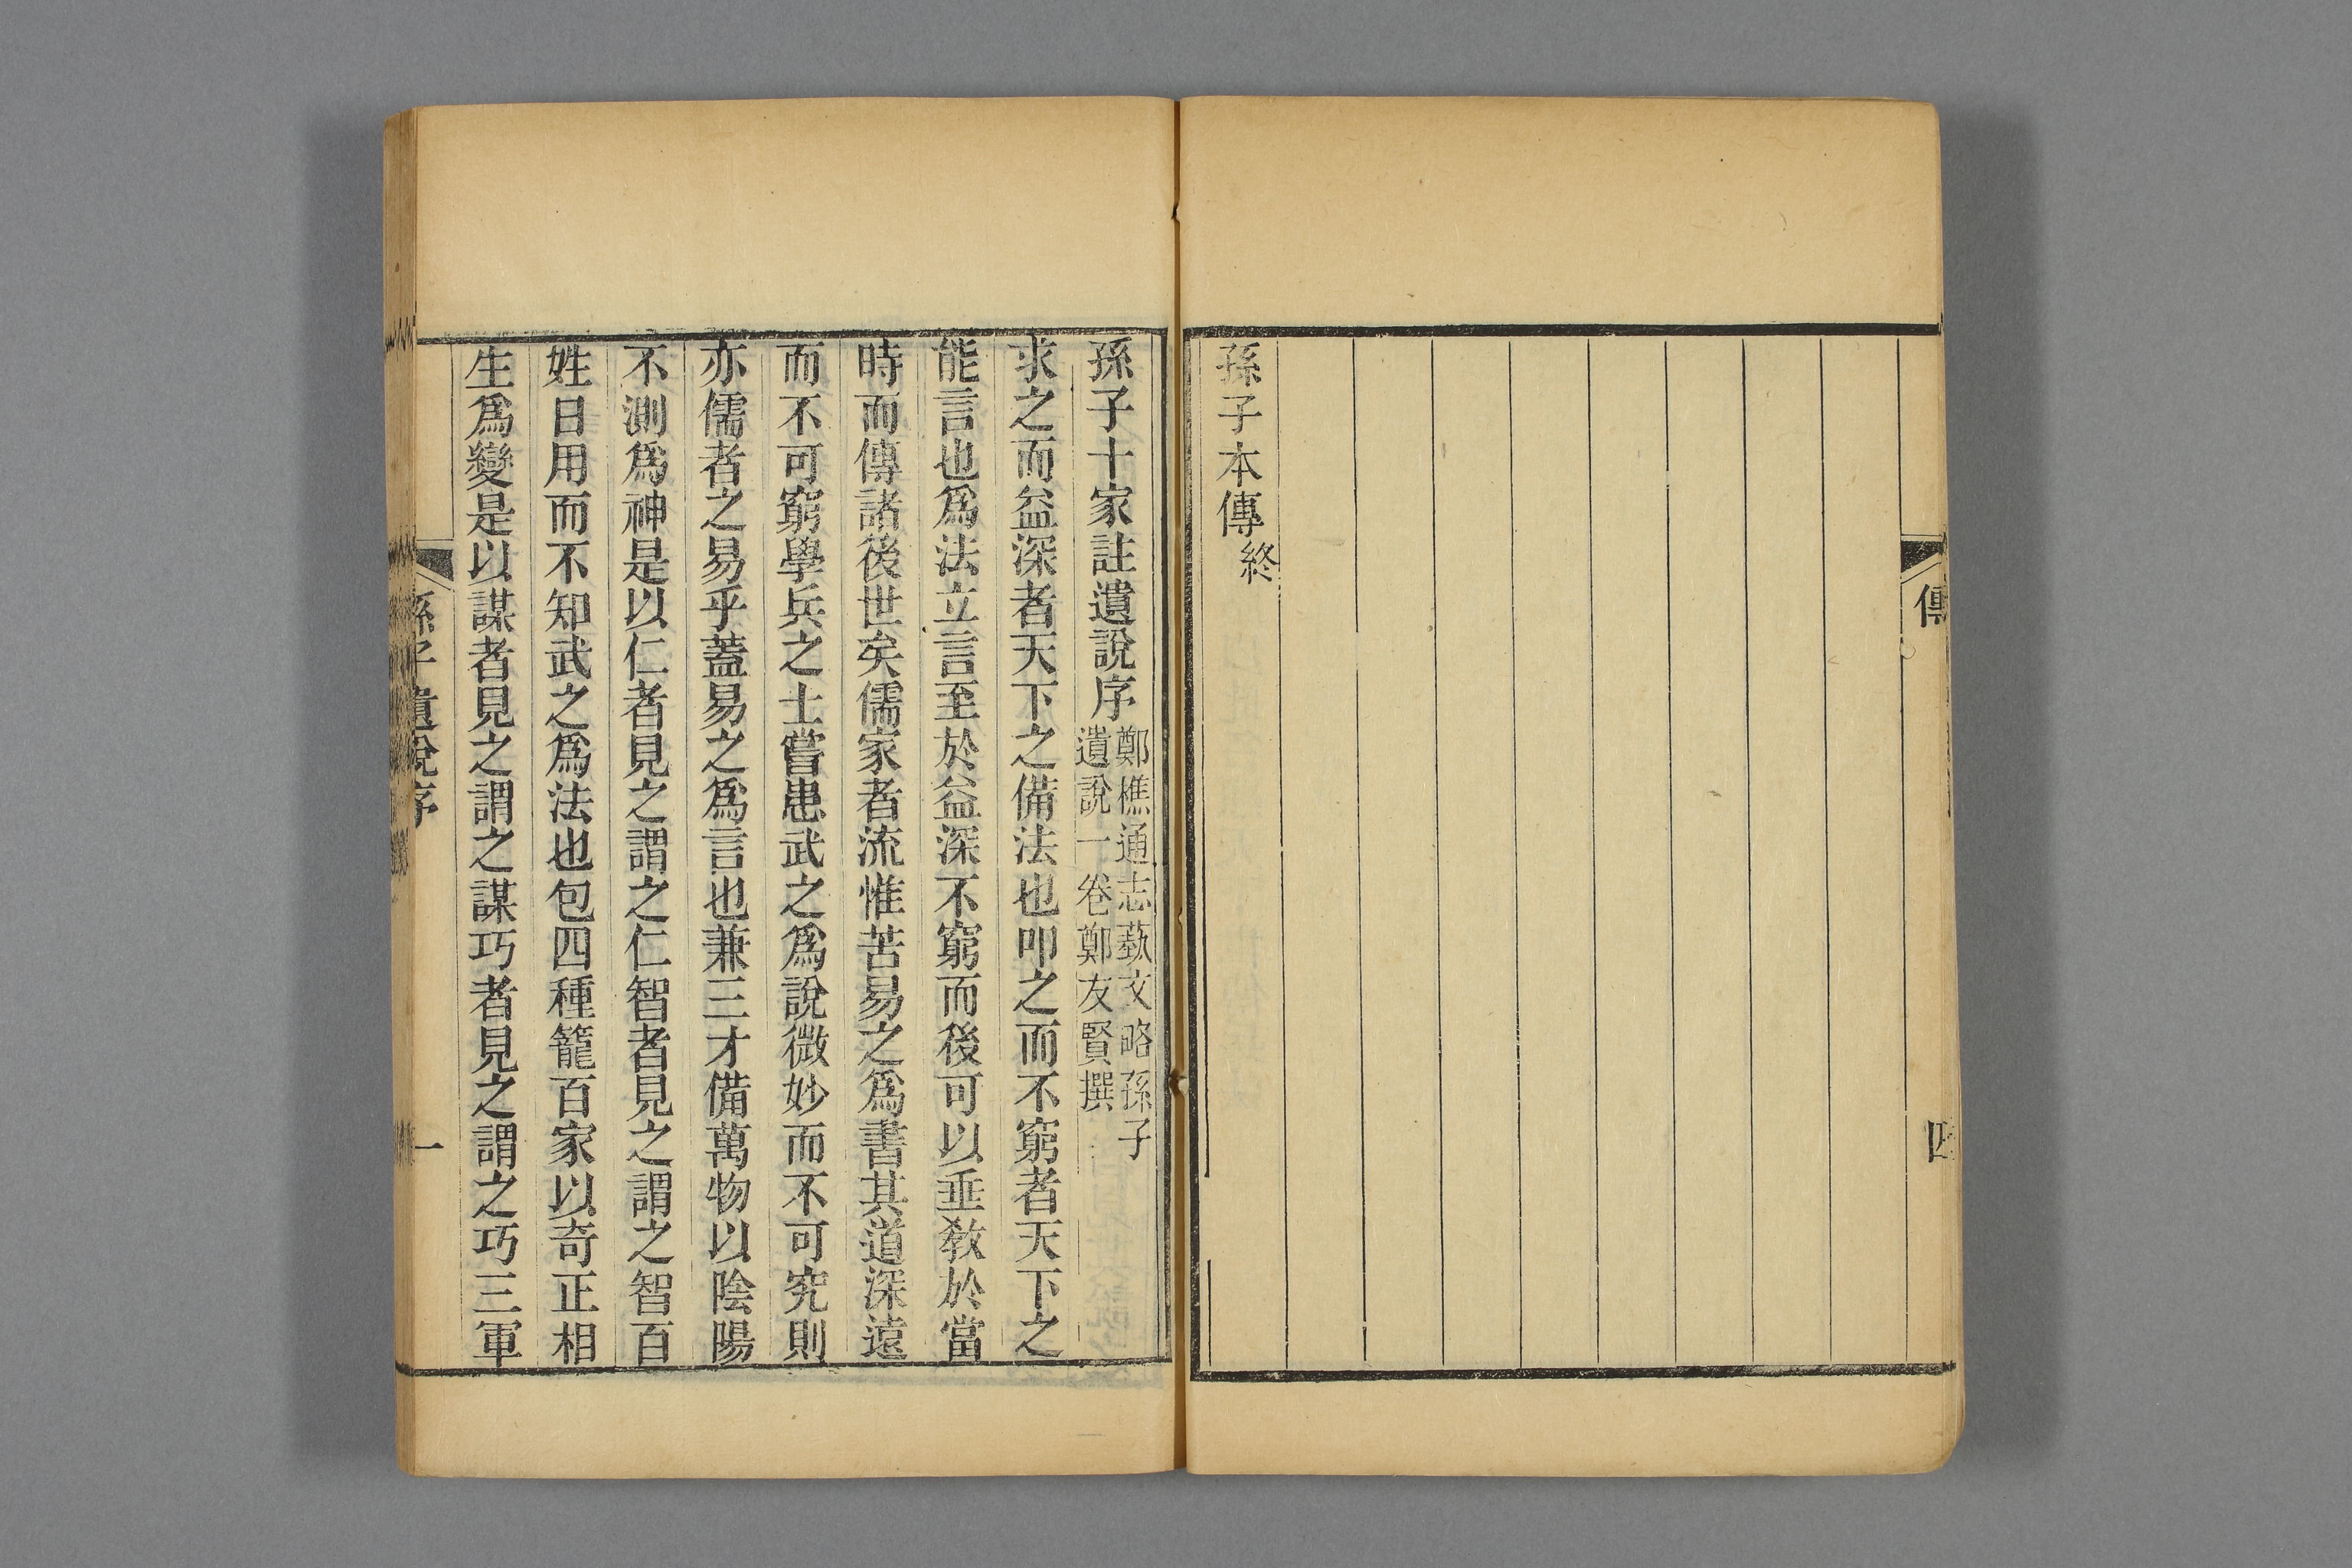 傳
四
孫子本傳終
孫子十家註遺說序
鄭樵通志蓺文略孫子
遺說一卷鄭友賢撰
求之而益深者天下之備法也叩之而不窮者天下之
能言也爲法立言至於益深不窮而後可以垂敎於當
時而傳諸後世矣儒家者流惟苦易之爲書其道深遠
而不可窮學兵之士嘗患武之爲說微妙而不可究則
亦儒者之易乎蓋易之爲言也兼三才備萬物以陰陽
不測爲神是以仁者見之謂之仁智者見之謂之智百
姓日用而不知武之爲法也包四種籠百家以奇正相
生爲變是以謀者見之謂之謀巧者見之謂之巧三軍
孫子遺說序
一